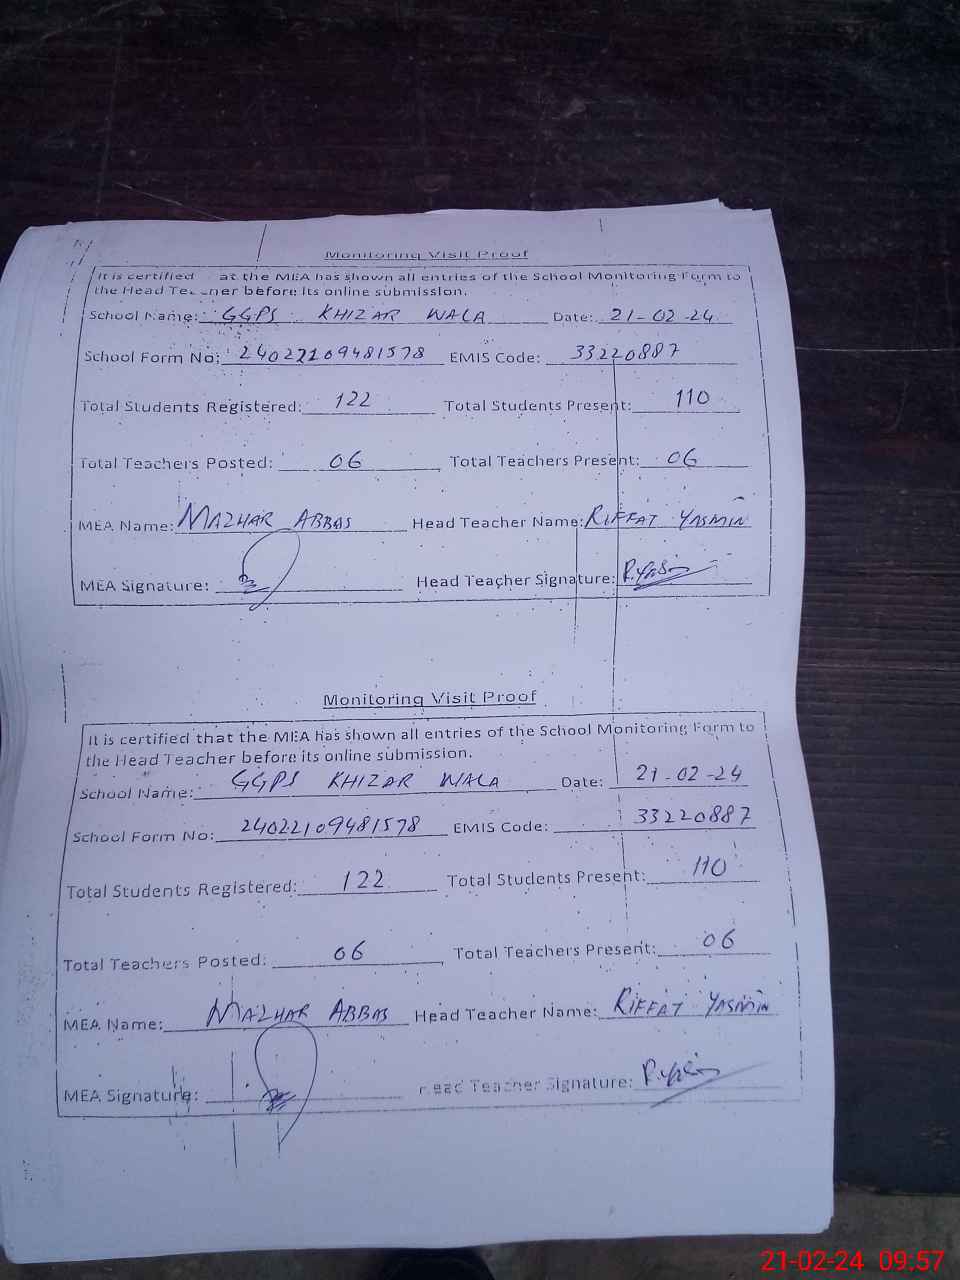 Monitoring Visit Proof
It is certified at the MEA has shown all entries of the School Monitoring Form to
the Head before its online submission.
School Name: GGPS KHIZAR WALA Date: 21-02-24
School Form No: 24022109481578 EMIS Code: 33220887
Total Students Registered: 122 Total Students Present: 110
Total Teachers Posted: 06 Total Teachers Present: 06
MEA Name: MAZHAR ABBAS Head Teacher Name: RIFFAT YASMIN
MEA Signature: Head Teacher Signature: R.Yasmin
Monitoring Visit Proof
It is certified that the MEA has shown all entries of the School Monitoring Form to
the Head Teacher before its online submission.
School Name: GGPS KHIZAR WALA Date: 21-02-24
School Form No: 24022109481578 EMIS Code: 33220887
Total Students Registered: 122 Total Students Present: 110
Total Teachers Posted: 06 Total Teachers Present: 06
MEA Name: MAZHAR ABBAS Head Teacher Name: RIFFAT YASMIN
MEA Signature: Head Teacher Signature:
21-02-24 09:57